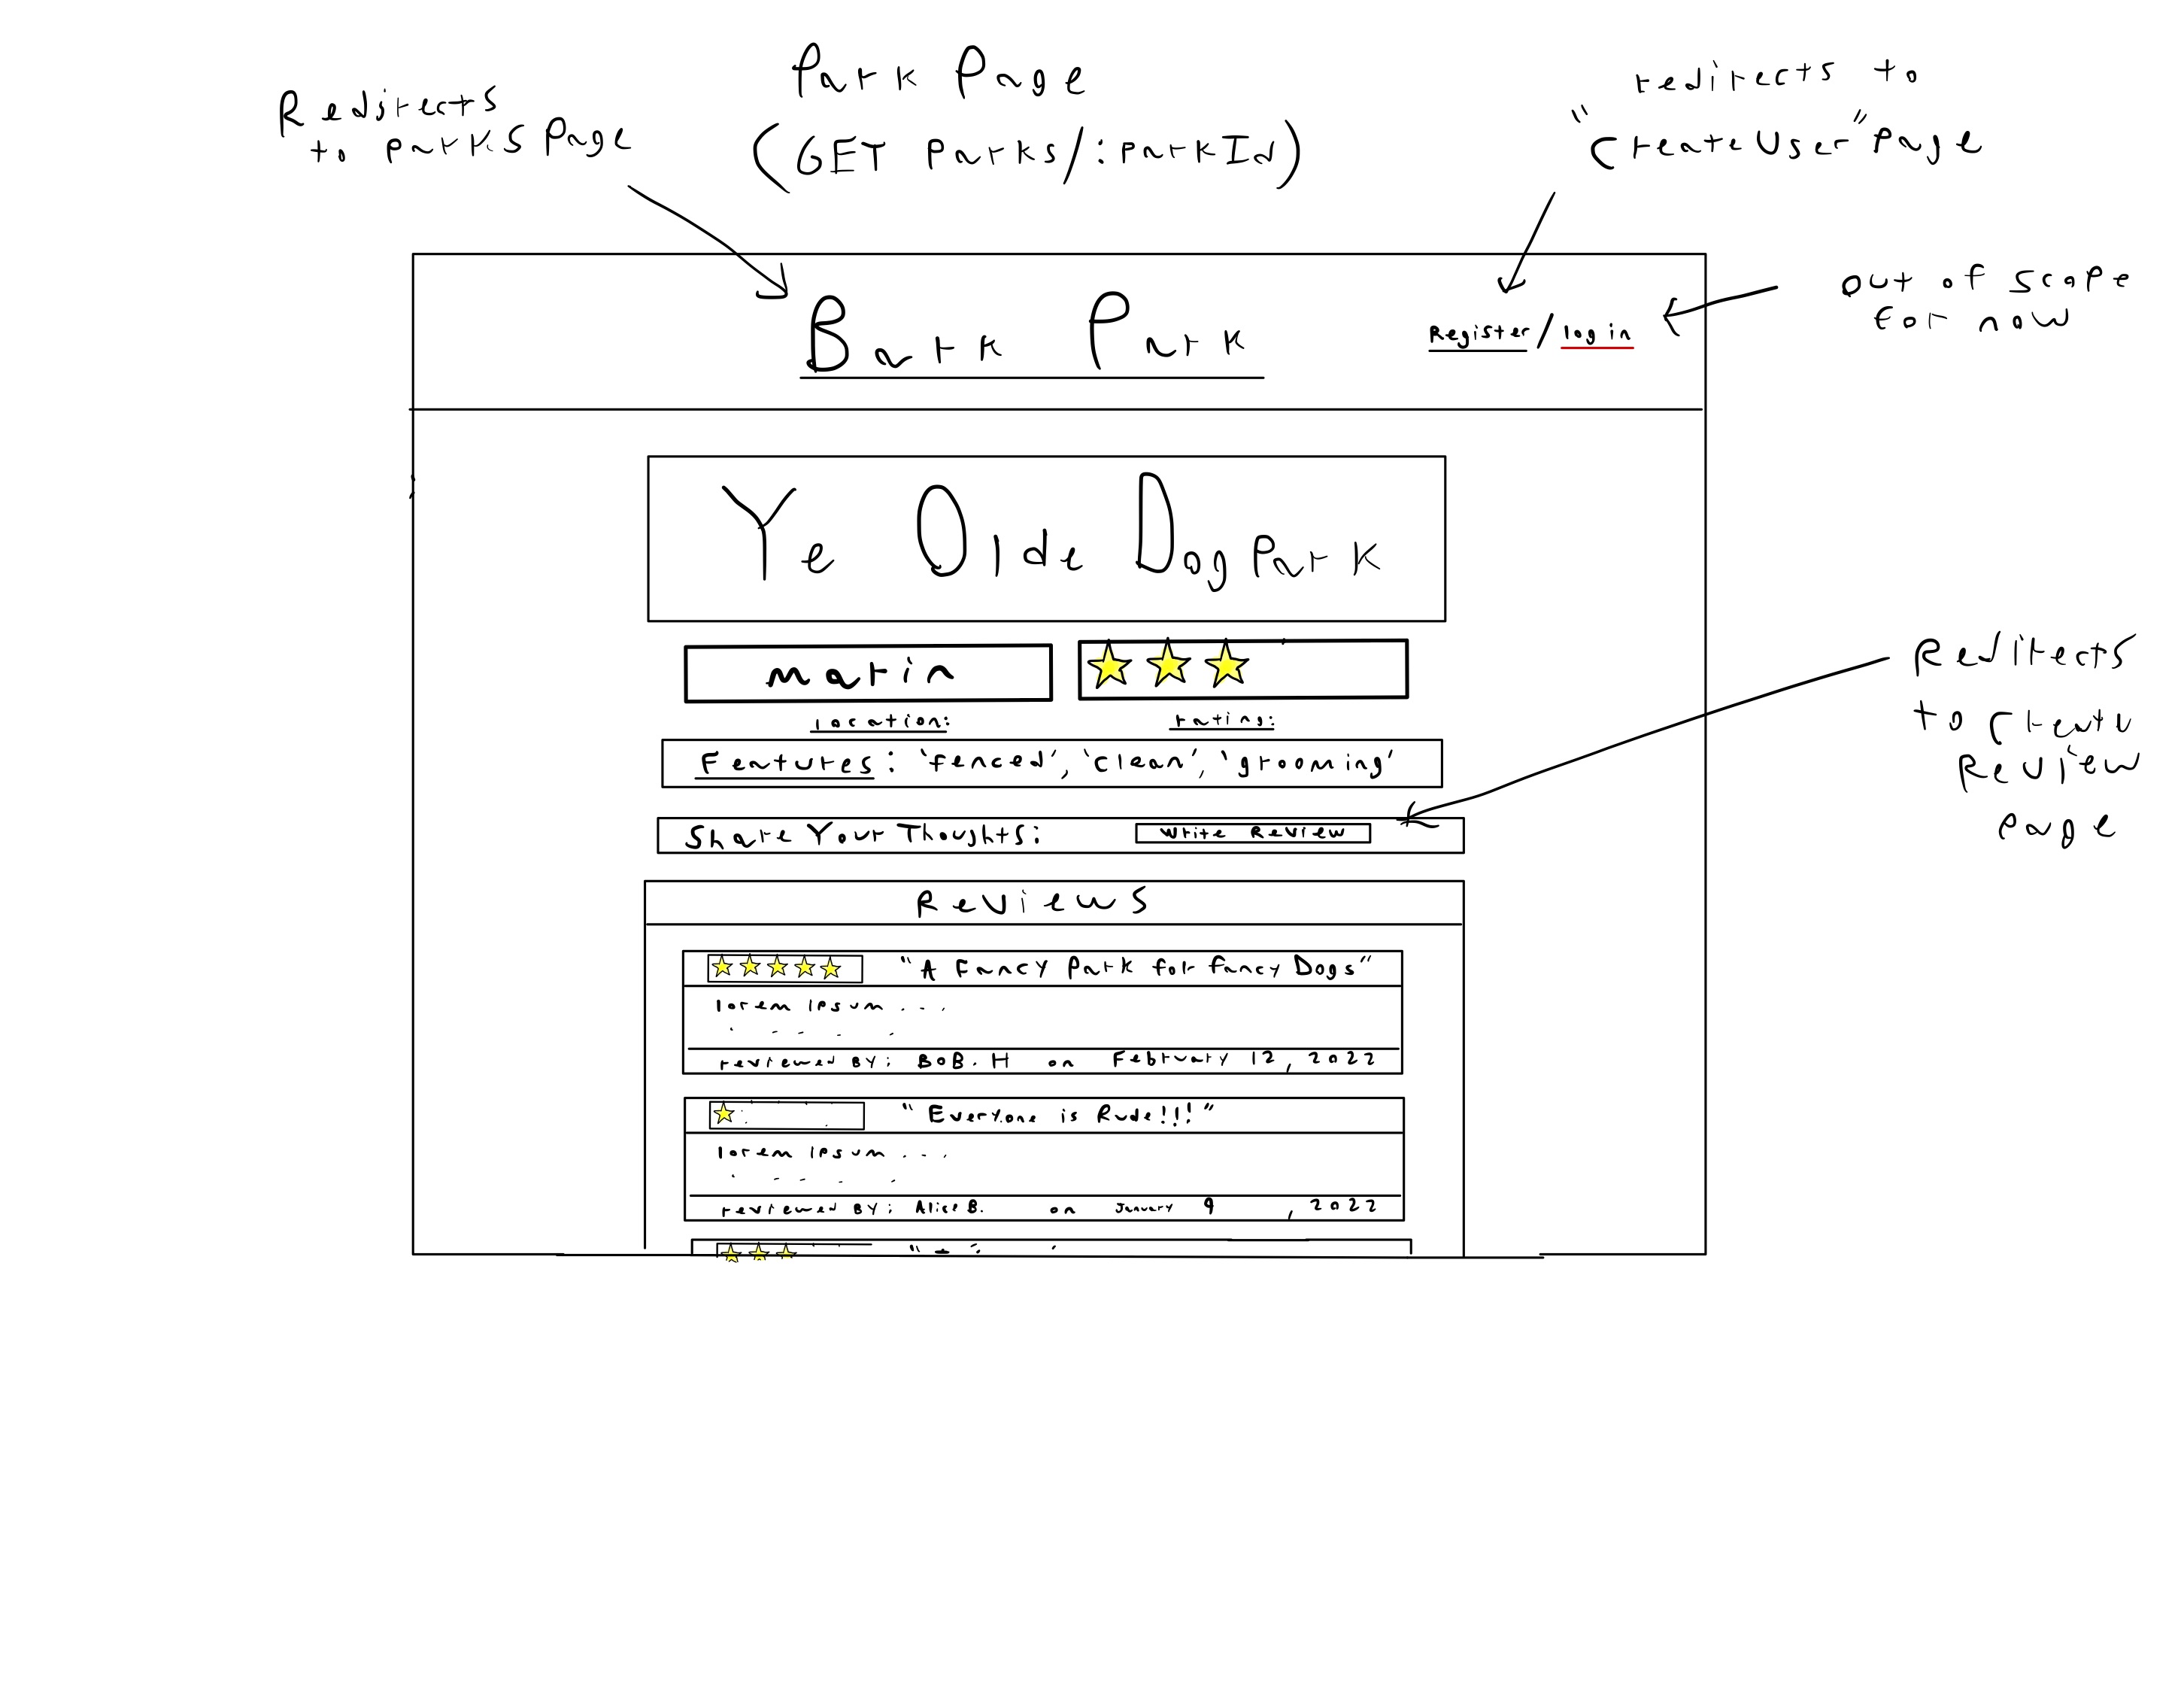 Park Page
(GET Parks/:parkId)
Redirects
to parks page
redirects to
"Create User" Page
out of scope
for now
Bark Park
Register/login
Ye Olde Dog Park
marin
location:
rating:
Features: 'fenced', 'clean', 'grooming'
Share Your Thoughts:
Write Review
Redirects
to create
Review
page
Reviews
"A Fancy Park for fancy Dogs"
lorem ipsum ...
reviewed BY: BOB. H on February 12, 2022
"Everyone is Rude!!!"
lorem ipsum ...
reviewed BY: Alice B. on January 9, 2022